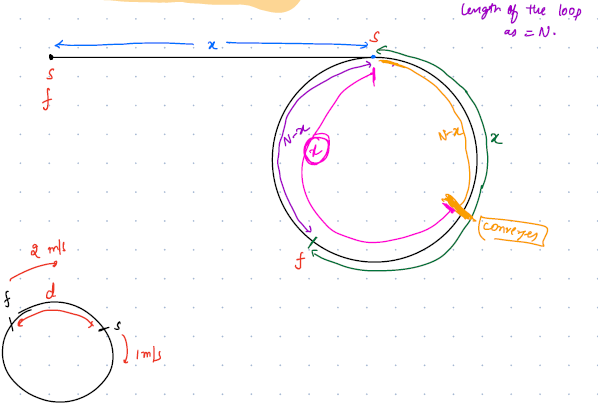 length of the loop
as = N.
x
s
s
f
N-x
x
N-x
x
f
converges
2 m/s
f
d
s
1 m/s